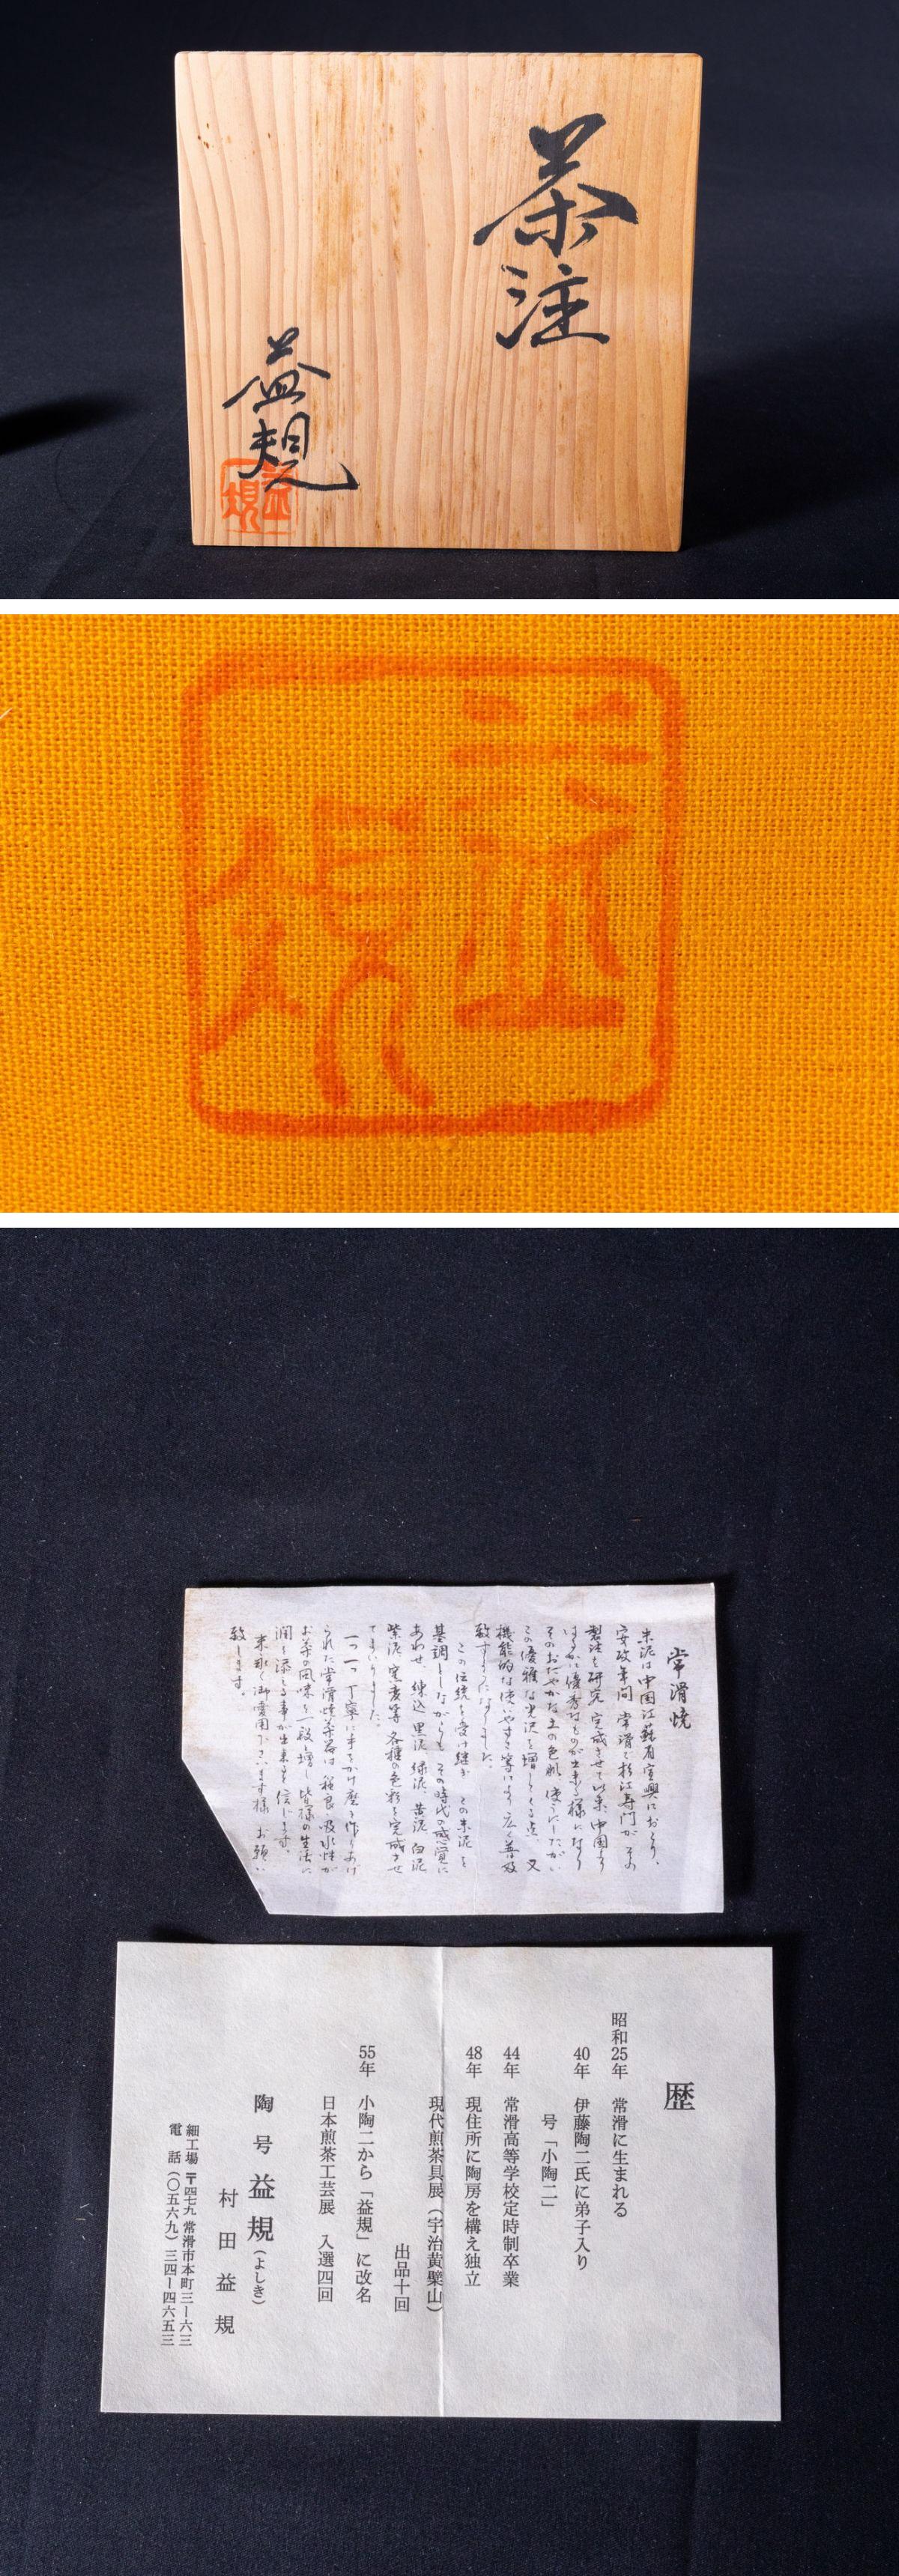 茶注
益規
益規
益規
常滑焼
朱泥は中国江蘇省宜興におこり、
安政年間 常滑で杉江寿門がその
製法を研究 完成させて以来、中国より
はるかに優秀なものが出来る様になり
そのおだやかな土の色肌 使うにしたがい
この優雅な光沢を増してくる点 又
機能的な使いやすさ等により 広く普及
致すようになりました。
この伝統を受け継ぎ この朱泥を
基調としながらも その時代の感覚に
あわせ、練込 黒泥 緑泥、黄泥 白泥
紫泥 窯変等 各種の色彩を完成させ
てまいりました。
一つ一つ 丁寧に手をかけ 作りあげ
られた常滑焼茶器は 吸水性が
お茶の風味を一段と増し 皆様の生活に
潤を添える事が出来ると信じます。
末永く御愛用下さいます様 お願い
致します。
歴
昭和25年 常滑に生まれる
40年 伊藤陶二氏に弟子入り
号「小陶二」
44年 常滑高等学校定時制卒業
48年 現住所に陶房を構え独立
現代煎茶具展(宇治黄檗山)
出品十回
55年 小陶二から「益規」に改名
日本煎茶工芸展 入選四回
陶号 益規(よしき)
村田益規
細工場 〒四七九 常滑市本町三ー六三
電話(〇五六九)三四ー四六五三